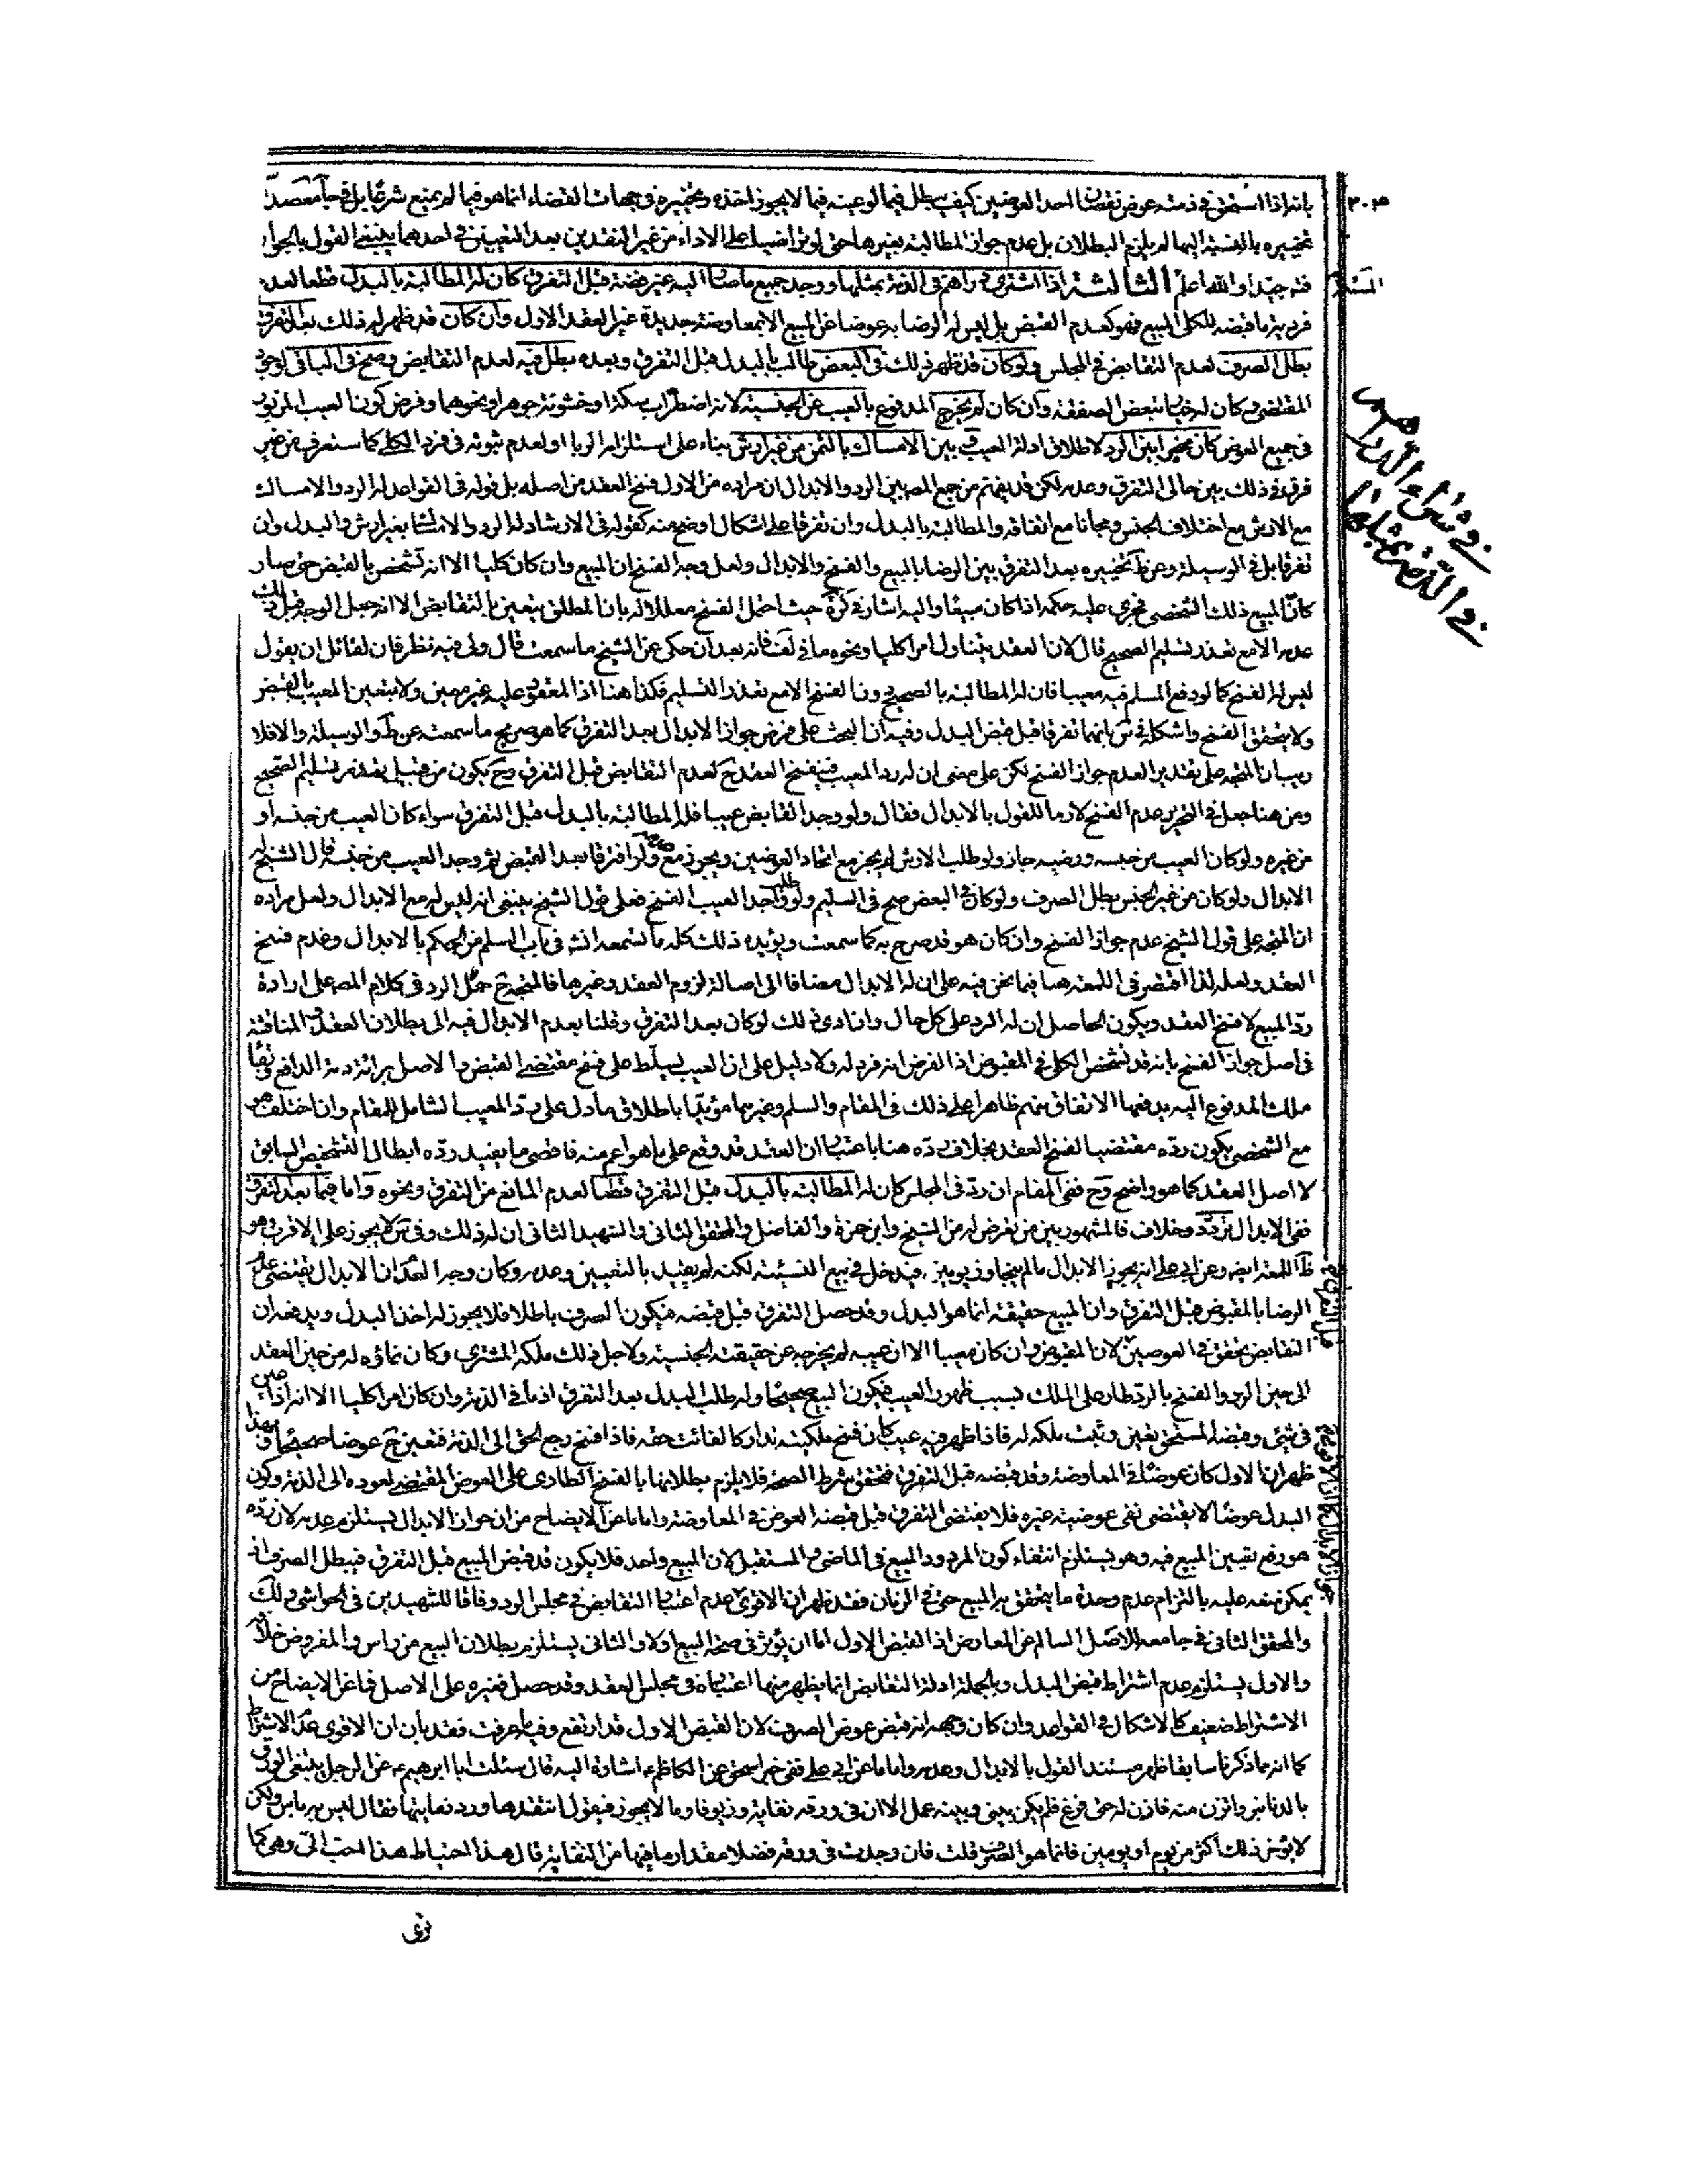 بانه اذا استحق فى ذمته عوض نقصان احد العوضين كيف يبطل فيما لو عينه فيما لا يجوز اخذه وتخييره فى جهات القضاء انما هو فيما لم يمنع شرعا بل فى جامع صد
تخييره بالنسبة اليها لم يلزم البطلان بل عدم جواز المطالبة بغيرها حتى لو تراضيا على الاداء من غير النقدين بعد التعيين فى احدهما ينبغى القول بالجواز
فتدبر جيدا والله اعلم الثالثة اذا اشترى دراهم فى الذمة بمثلها ووجد جميع ما صار اليه غير فضة قبل التفرق كان له المطالبة بالبدل قطعا لعدم
فردية ما قبضه للكلى المبيع فهو كعدم القبض بل ليس له الرضا به عوضا عن المبيع الا بمعاوضة جديدة غير العقد الاول وان كان قد ظهر له ذلك بعد التفرق
بطل الصرف لعدم التقابض فى المجلس ولو كان قد ظهر ذلك فى البعض طالب بالبدل قبل التفرق وبعده بطل فيه لعدم التقابض وصح فى الباقى لوجود
المقتضى وكان له خيار تبعض الصفقة وان كان لم يخرج المدفوع بالعيب عن الجنسية لانه اضطراب سكة او خشونة جوهر او نحوهما وفرض كون العيب المزبور
فى جميع العوض كان مخيرا بين الرد لاطلاق ادلة العيب وبين الامساك بالثمن من غير ارش بناء على استلزامه الربا او لعدم ثبوته فى فرد الكلى كما ستعرفه من غير
فرق فى ذلك بين حالى التفرق وعدمه لكن قد يفهم من جمع المصه بين الرد والابدال ان مراده من الاول فسخ العقد من اصله بل قوله فى القواعد له الرد والامساك
مع الارش مع اختلاف الجنس ومجانا مع اتفاقه والمطالبة بالبدل وان تفرقا على اشكال اوضح منه كقوله فى الارشاد له الرد والامساك بغير ارش والبدل وان
تفرقا بل فى الوسيلة وعن ط تخييره بعد التفرق بين الرضا بالمبيع والفسخ والابدال ولعل وجه الفسخ ان المبيع وان كان كليا الا انه تشخص بالقبض حتى صار
كان المبيع ذلك الشخصى فيجرى عليه حكمه اذا كان مبيعا واليه اشار فى كرة حيث احتمل الفسخ معللا له بان المطلق يتعين بالتقابض الا انه جعل الوجه قبل ذلك
عدمه الا مع تعذر تسليم الصحيح قال لان العقد يتناول امرا كليا ونحوه ما فى لف فانه بعد ان حكى عن الشيخ ما سمعت قال ولى فيه نظر فان لقائل ان يقول
ليس له الفسخ كما لو دفع المسلم فيه معيبا فان له المطالبة بالصحيح دون الفسخ الا مع تعذر التسليم فكذا هنا اذ المعقود عليه غير معين ولا يتعين المعيب بالقبض
ولا يتحقق الفسخ واشكله فى س بانهما تفرقا قبل قبض البدل وفيه ان البحث على فرض جواز الابدال بعد التفرق كما هو صريح ما سمعته عن ط والوسيلة والا فلا
ريب ان المتجه على تقدير العدم جواز الفسخ لكن على معنى ان له رد المعيب فينفسخ العقد ح لعدم التقابض قبل التفرق وح يكون من قبيل تعذر تسليم الصحيح
ومن هنا جعل فى التحرير عدم الفسخ لازما للقول بالابدال فقال ولو وجد القابض عيبا فله المطالبة بالبدل قبل التفرق سواء كان العيب من جنسه او
من غيره ولو كان العيب من جنسه ورضيه جاز ولو طلب الارش لم يجز مع اتحاد العوضين ويجوز مع ولو افترقا بعد القبض ثم وجد العيب من جنسه قال الشيخ له
الابدال ولو كان من غير الجنس بطل الصرف ولو كان فى البعض صح فى السليم ولو طلب واجد العيب الفسخ فعلى قول الشيخ ينبغى انه ليس له مع الابدال ولعل مراده
ان المتجه على قول الشيخ عدم جواز الفسخ وان كان هو قد صرح به كما سمعت ويؤيده ذلك كله ما تسمعه انش فى باب السلم من الحكم بالابدال وعدم فسخ
العقد ولعله لذا اقتصر فى اللمعة هنا فيما نحن فيه على ان له الابدال مضافا الى اصالة لزوم العقد وغيرها فالمتجه ح حمل الرد فى كلام المصه على ارادة
رد المبيع لا فسخ العقد ويكون الحاصل ان له الرد على كل حال وان ادى ذلك لو كان بعد التفرق وقلنا بعدم الابدال فيه الى بطلان العقد والمناقشة
فى اصل جواز الفسخ بانه قد تشخص الكلى فى المقبوض اذ الفرض انه فرد له ولا دليل على ان العيب يسلط على فسخ مقتضى القبض والاصل برائة ذمة الدافع وبقاء
ملك المدفوع اليه يدفعها الاتفاق منهم ظاهرا على ذلك فى المقام والسلم وغيرهما مؤيدا باطلاق ما دل على رد المعيب الشامل للمقام وان اختلف هو
مع الشخصى بكون رده مقتضيا لفسخ العقد بخلاف رده هنا باعتبار ان العقد قد وقع على ما هو اعم منه فاقصى ما يفيد رده ابطال التشخيص السابق
لا اصل العقد كما هو واضح وح ففى المقام ان رد فى المجلس كان له المطالبة بالبدل قبل التفرق قطعا لعدم المانع من التفرق ونحوه واما فيما بعد التفرق
ففى الابدال تردد وخلاف فالمشهور بين من تعرض له من الشيخ وابن حمزة والفاضل والمحقق الثانى والشهيد الثانى ان له ذلك وفى س لا يجوز على الاقرب وهو
ظ اللمعة ايضه وعن ابى على انه يجوز الابدال ما لم يتجاوز يومين فيدخل فى بيع النسيئة لكنه لم يقيد بالتعيين وعدمه وكان وجه العدم ان الابدال يقتضى عدم
الرضا بالمقبوض قبل التفرق وان المبيع حقيقة انما هو البدل وقد حصل التفرق قبل قبضه فيكون الصرف باطلا فلا يجوز له اخذ البدل ويدفعه ان
التقابض تحقق فى العوضين لان المقبوض وان كان معيبا الا ان عيبه لم يخرجه عن حقيقة الجنسية ولاجل ذلك ملكه المشترى وكان نماؤه له من حين العقد
الى حين الرد والفسخ بالرد طار على الملك بسبب ظهور العيب فيكون البيع صحيحا وله طلب البدل بعد التفرق اذ ما فى الذمة وان كان امرا كليا الا انه اذا عين
فى شئ وقبضه المستحق تعين وثبت ملكه له فاذا ظهر فيه عيب كان فسخ ملكيته تداركا لفائت حقه فاذا فسخ رجع الحق الى الذمة فتعين ح عوضا صحيحا وبهذا
ظهر ان الاول كان عوضا فى المعاوضة وقد قبضه قبل التفرق فتحقق شرط الصحة فلا يلزم بطلانها بالفسخ الطارى على العوض المقتضى لعوده الى الذمة وكون
البدل عوضا لا يقتضى نفى عوضية غيره فلا يقتضى التفرق قبل قبضه العوض فى المعاوضة واما ما عن الايضاح من ان جواز الابدال يستلزم عدمه لان رده
هو رفع تعيين المبيع فيه وهو يستلزم انتفاء كون المردود المبيع فى الماضى والمستقبل لان المبيع واحد فلا يكون قد قبض المبيع قبل التفرق فيبطل الصرف فانه
يمكن منعه عليه بالتزام عدم وحدة ما يتحقق به المبيع حتى فى الزمان فقد ظهر ان الاقوى عدم اعتبار التقابض فى مجلس الرد وفاقا للشهيدين فى الحواشى ولك
والمحقق الثانى فى جامعه للاصل السالم عن المعارض اذ القبض الاول اما ان يؤثر فى صحة البيع اولا والثانى يستلزم بطلان البيع من راس والمفروض خلافه
والاول يستلزم عدم اشتراط قبض البدل وبالجملة ادلة التقابض انما يظهر منها اعتباره فى مجلس العقد وقد حصل فغيره على الاصل فما عن الايضاح من
الاشتراط ضعيف كالاشكال فى القواعد وان كان وجهه انه قبض عوض الصرف لان القبض الاول قد ارتفع وفيه ما عرفت فقد بان ان الاقوى عدم الاشتراط
كما انه مما ذكرنا سابقا ظهر مستند القول بالابدال وعدمه واما ما عن ابى على ففى خبر اسحق عن الكاظم ع اشارة اليه قال سئلت ابا ابرهيم ع عن الرجل يبتغى الورق
بالدنانير واتزن منه فازن له حتى فرغ فلم يكن بينى وبينه عمل الا ان فى ورقه نفاية وزيوفا وما لا يجوز فيقول انتقدها ورد نفايتها فقال ليس به باس ولكن
لا تؤخر ذلك اكثر من يوم او يومين فانما هو الصرف قلت فان وجدت فى ورقه فضلا مقدار ما فيها من النفاية قال هذا احتياط هذا احب الى وهى كما
ترى
المسئلة
فى شراء الدراهم
فى الذمة بمثلها